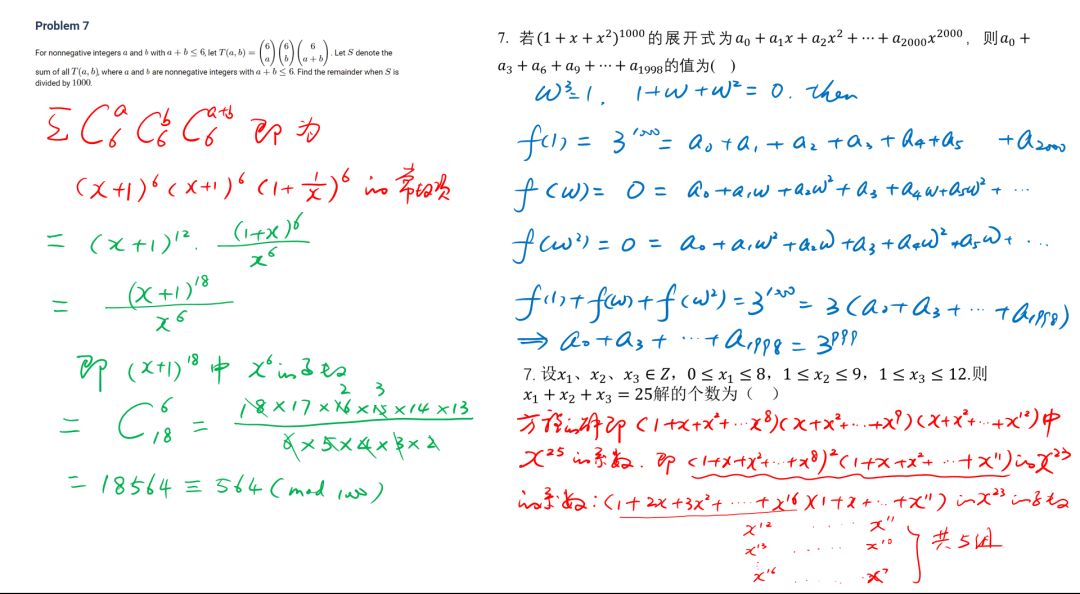 Problem 7
For nonnegative integers a and b with a + b ≤ 6, let T(a, b) = (6 a)(6 b)(6 a + b). Let S denote the
sum of all T(a, b), where a and b are nonnegative integers with a + b ≤ 6. Find the remainder when S is
divided by 1000.
Σ C₆ᵃ C₆ᵇ C₆ᵃ⁺ᵇ 即为
(x+1)⁶ (x+1)⁶ (1+1/x)⁶ 的常数项
= (x+1)¹² · (1+x)⁶/x⁶
= (x+1)¹⁸/x⁶
即 (x+1)¹⁸ 中 x⁶的系数
= C₁₈⁶ = 18×17×16×15×14×13 / 6×5×4×3×2
2 3
= 18564 ≡ 564 (mod 1000)
7. 若(1 + x + x²)¹⁰⁰⁰的展开式为a₀ + a₁x + a₂x² + ⋯ + a₂₀₀₀x²⁰⁰⁰， 则a₀ +
a₃ + a₆ + a₉ + ⋯ + a₁₉₉₈的值为( )
ω³=1, 1+ω+ω²=0. then
f(1) = 3¹⁰⁰⁰ = a₀+a₁+a₂+a₃+a₄+a₅ +a₂₀₀₀
f(ω) = 0 = a₀+a₁ω+a₂ω²+a₃+a₄ω+a₅ω²+⋯
f(ω²) = 0 = a₀+a₁ω²+a₂ω+a₃+a₄ω²+a₅ω+⋯
f(1)+f(ω)+f(ω²)=3¹⁰⁰⁰=3(a₀+a₃+⋯+a₁₉₉₈)
⇒ a₀+a₃+⋯+a₁₉₉₈=3⁹⁹⁹
7. 设x₁、x₂、x₃ ∈ Z，0 ≤ x₁ ≤ 8，1 ≤ x₂ ≤ 9，1 ≤ x₃ ≤ 12.则
x₁ + x₂ + x₃ = 25解的个数为（ ）
方程的解即(1+x+x²+⋯x⁸)(x+x²+⋯+x⁹)(x+x²+⋯+x¹²)中
x²⁵的系数. 即(1+x+x²+⋯+x⁸)²(1+x+x²+⋯+x¹¹)的x²³
的系数:(1+2x+3x²+⋯⋯+x¹⁶)(1+x+⋯+x¹¹)的x²³的系数
x¹² ⋯⋯ x¹¹
x¹³ ⋯⋯ x¹⁰ 共5组
⋮
x¹⁶ ⋯⋯ x⁷